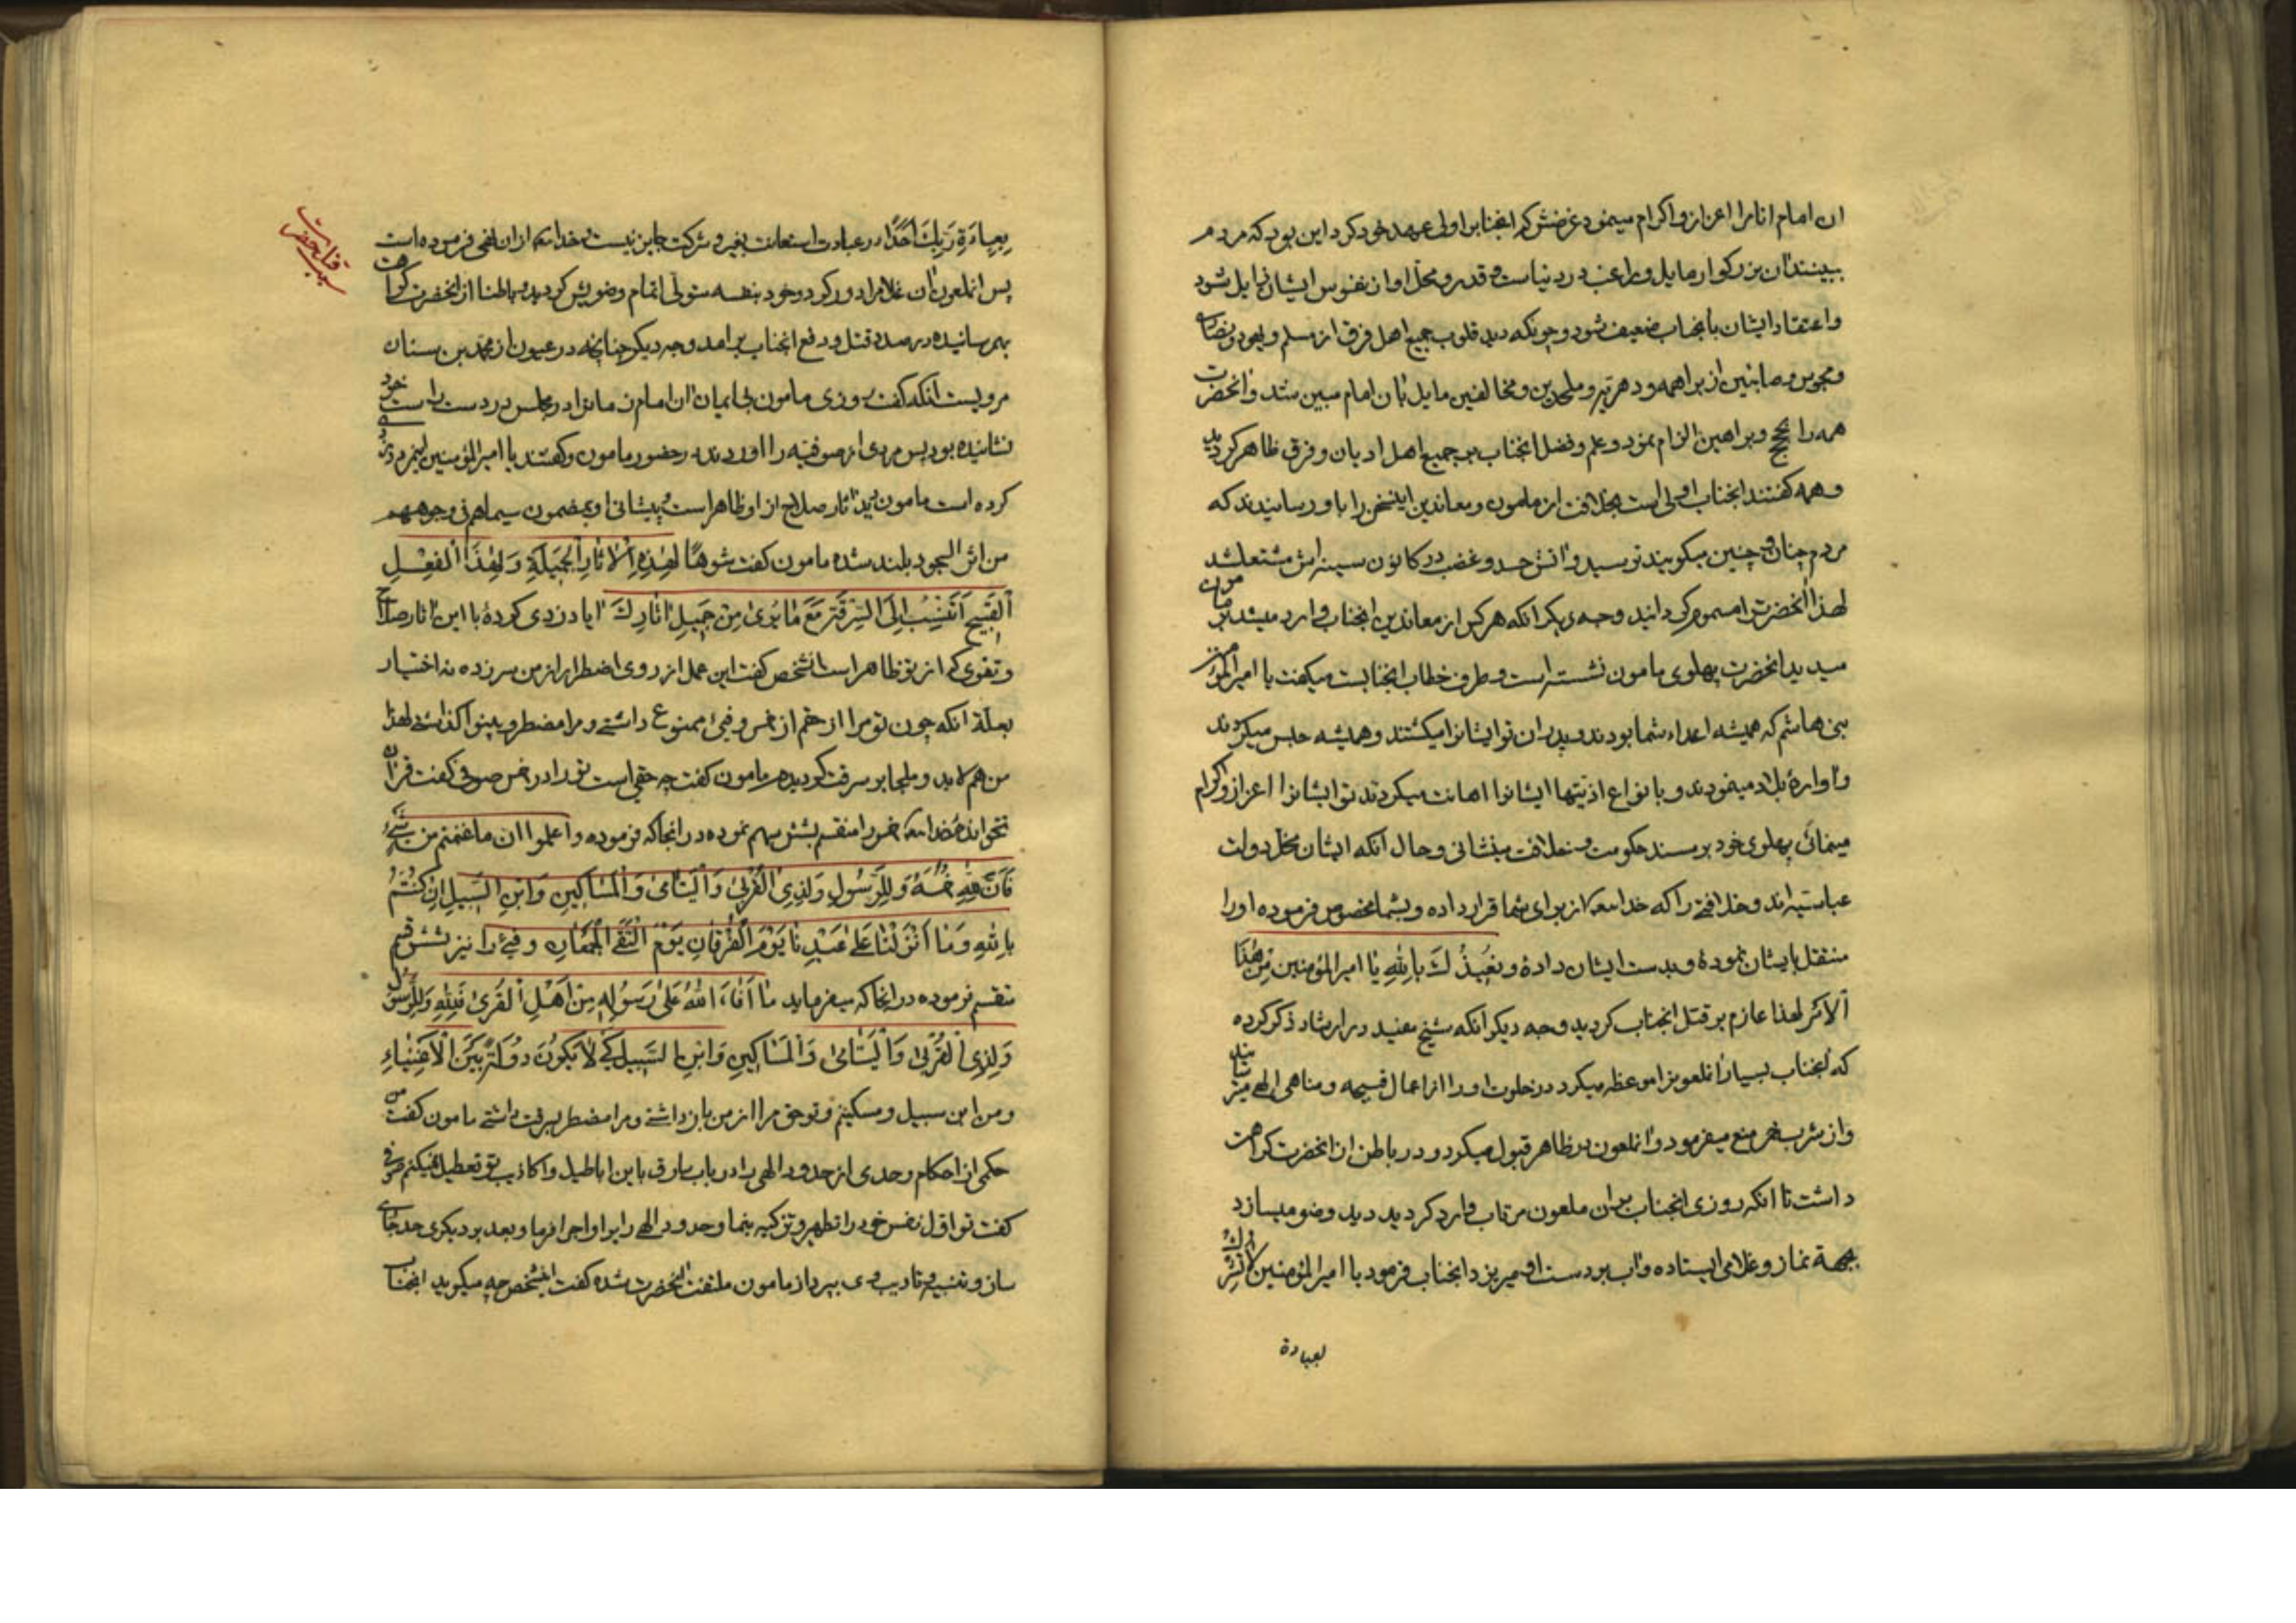 ان امام انام را اعزاز و اکرام مینمود غرضش که انجناب را ولی عهد خود کرد این بود که مردم
ببینند ان بزرکوار مایل و راغب در دنیاست و قدر و محل او از نفوس ایشان زایل شود
و اعتقاد ایشان بانجناب ضعیف شود و چونکه دید قلوب جمیع اهل فرق از مسلم و یهود و نصاری
و مجوس و صابئین از براهمه و دهریه و ملحدین و مخالفین مایل بان امام مبین شد و انحضرت
همه را بحجج و براهین الزام نمود و علم و فضل انجناب بر جمیع اهل ادیان و فرق ظاهر کردید
و همه کفتند انجناب اولی است بخلافت از مامون و معاندین اینسخن را باو رسانیدند که
مردم چنان و چنین میکویند ترسید و اتش حسد و غضب در کانون سینه اش مشتعل شد
لهذا انحضرت را مسموم کردانید وجه دیکر انکه هر کس از معاندین انجناب وارد میشد بر مامون
میدید انحضرت پهلوی مامون نشسته است و طرف خطاب انجنابست میکفت یا امیر المؤمنین
بنی هاشم که همیشه اعداء شما بودند و پدران تو ایشانرا میکشتند و همیشه حبس میکردند
و اوارهٔ بلاد مینمودند و بانواع اذیتها ایشانرا اهانت میکردند تو ایشانرا اعزاز و اکرام
مینمائی پهلوی خود بر مسند حکومت و خلافت مینشانی و حال انکه ایشان مخل دولت
عباسیه اند و خلافتی را که خدایتعه از برای شما قرار داده و بشما مخصوص فرموده او را
منتقل بایشان نمودهٔ و بدست ایشان دادهٔ و نُعیذُكَ بِاللهِ یا امیر المؤمنین مِن هٰذَا
اَلاَمر لهذا عازم بر قتل انجناب کردید وجه دیکر انکه شیخ مفید در ارشاد ذکر کرده
که انجناب بسیار انملعونرا موعظه میکرد در خلوت و او را از اعمال قبیحه و مناهی الهی میترسانید
و از شرب خمر منع میفرمود و انملعون در ظاهر قبول میکرد و در باطن از انحضرت کراهت
داشت تا انکه روزی انجناب بر ان ملعون مرتاب وارد کردید دید وضو میسازد
بجهة نماز و غلامی ایستاده و اب بر دست او میریزد انجناب فرمود یا امیر المؤمنین لا تشرك
لعبادة
بِعِبادَةِ رَبِّكَ اَحَدًا در عبادت استعانت بغیر و شرکت جایز نیست و خدایتعه از ان نهی فرموده است
پس انملعون ان غلام را دور کرد و خود بنفسه متولی اتمام وضویش کردید و باطنا از انحضرت کراهت
بهم رسانیده در صدد قتل و دفع انجناب برامد وجه دیکر چنانچه در عیون از محمد بن سنان
مرویست انکه کفت روزی مامون بی ایمان ان امام زمانرا در مجلس در دست راست خود
نشانیده بود پس مردی از صوفیه را اوردند در حضور مامون و کفتند یا امیر المؤمنین اینمرد دزدی
کرده است مامون دید اثار صلاح از او ظاهر است و پیشانی او بمضمون سیماهم فی وجوههم
من اثر السجود بلند شده مامون کفت شوهًا لِهٰذِهِ الاٰثارِ الجَمیلَةِ وَ لِهٰذَا الفِعلِ
اَلقَبیحِ اَتُنسَبُ اِلَی السِّرقَةِ مَعَ مٰا نَریٰ مِن جَمیلِ اٰثارِكَ ایا دزدی کردهٔ با این اثار صلاح
و تقوی که از تو ظاهر است انشخص کفت این عمل از روی اضطرار از من سر زده نه اختیار
بعلة انکه چون تو مرا از حقم از خمس و فیئ ممنوع داشتی و مرا مضطر و بینوا کذاشتی لهذا
من هم لابد و ملجا بر سرقت کردیدم مامون کفت چه حقی است تو را در خمس صوفی کفت قران
نخوانده خدایتعه خمس را منقسم بشش سهم نموده در انجا که فرموده و اعلموا ان ما غنمتم من شیئ
فَاَنَّ لِلّٰهِ خُمُسَهُ وَ لِلرَّسُولِ وَ لِذِی القُربیٰ وَ الیَتٰامیٰ وَ المَسٰاکِینِ وَ ابنِ السَّبِیلِ اِن کُنتُم اٰمَنتُم
بِاللهِ وَ مٰا اَنزَلنٰا عَلیٰ عَبدِنٰا یَومَ الفُرقٰانِ یَومَ التَقَی الجَمعٰانِ و فیئ را نیز بشش قسم
تقسم فرموده در انجا که میفرماید مٰا اَفٰاءَ اللهُ عَلیٰ رَسُولِهِ مِن اَهلِ القُریٰ فَلِلّٰهِ وَ لِلرَّسُولِ
وَ لِذِی القُربیٰ وَ الیَتٰامیٰ وَ المَسٰاکِینِ وَ ابنِ السَّبِیلِ کَی لاٰ یَکُونَ دُولَةً بَینَ الاَغنِیٰاءِ
و من ابن سبیل و مسکینم و تو حق مرا از من باز داشتی و مرا مضطر بسرقت داشتی مامون کفت من
حکمی از احکام و حدی از حدود الهی را در باب سارق باین اباطیل و اکاذیب تو تعطیل نمیکنم صوفی
کفت تو اول نفس خود را تطهیر و تزکیه بنما و حدود الهی را بر او اجرا فرما و بعد بر دیکری حد جاری
ساز و تنبیه و تادیب وی بپرداز مامون ملتفت انحضرت شده کفت اینشخص چه میکوید انجناب